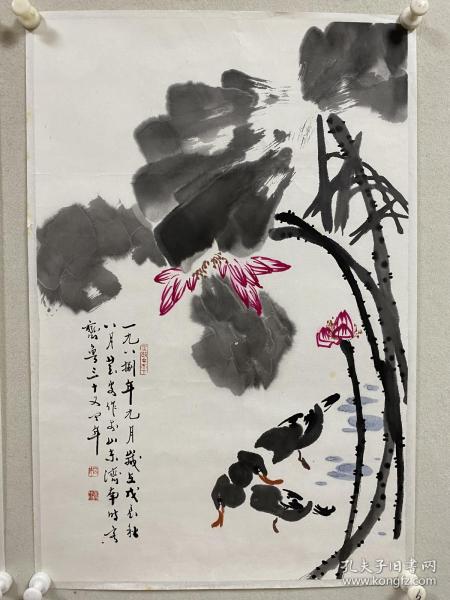 一九八捌年元月歲在戊辰秋
八月 作於山东濟南時客
齊魯三十又四年
孔夫子旧书网
www.kongfz.com